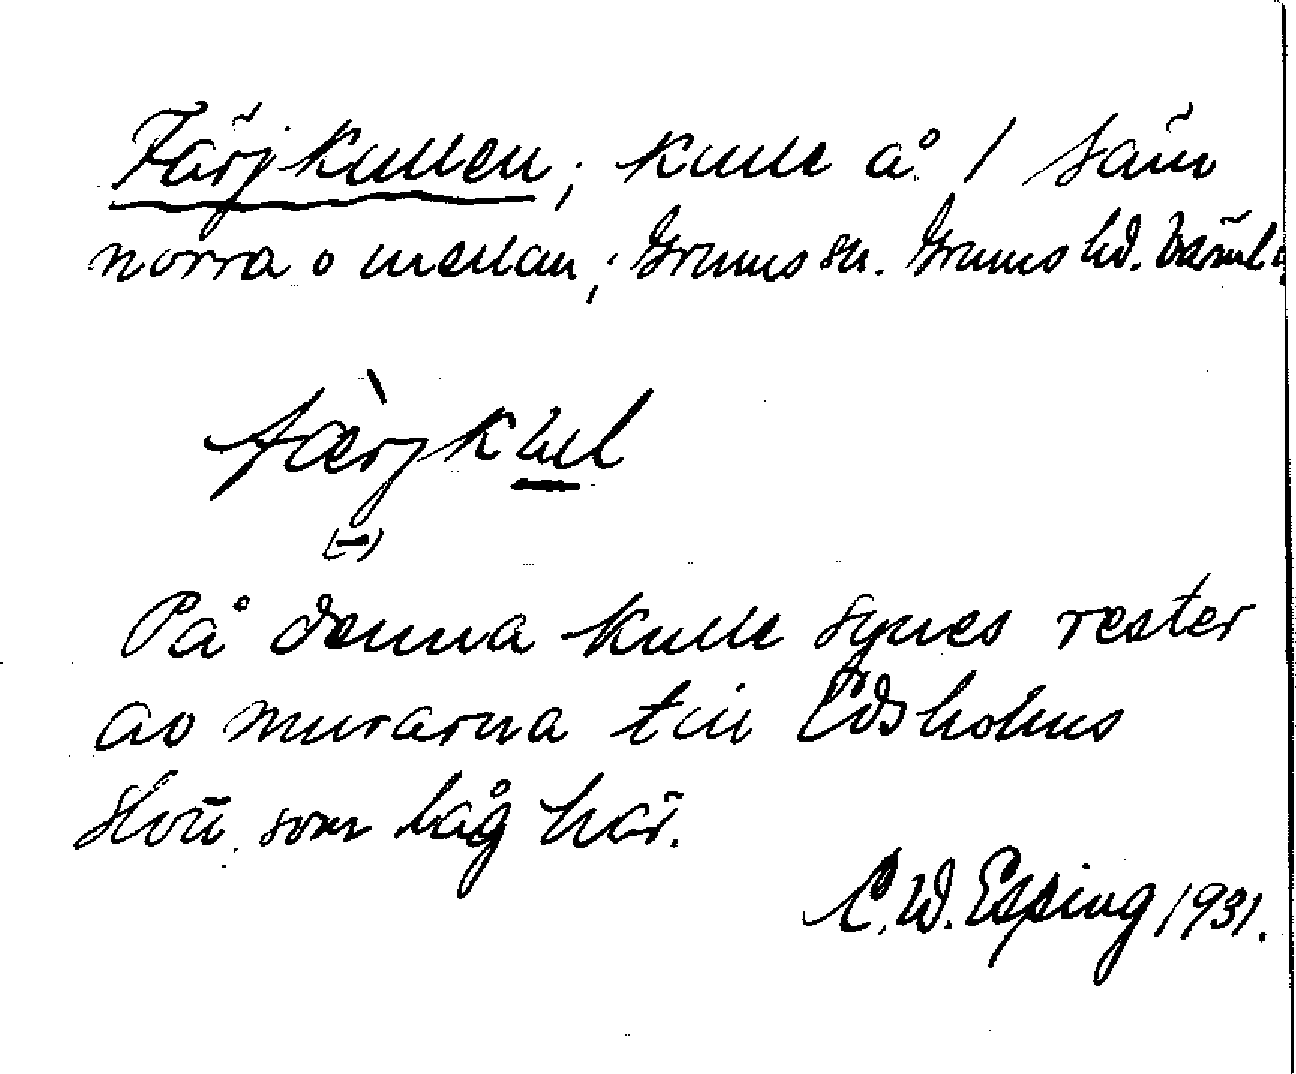 Färjkullen; kulle å 1 Säm
norra o mellan; Grums sn. Grums hd. Värml.
færjkul
(-)
På denna kulle synes rester
av murarna till Edsholms
slott som låg här.
C. W. Epping 1931.